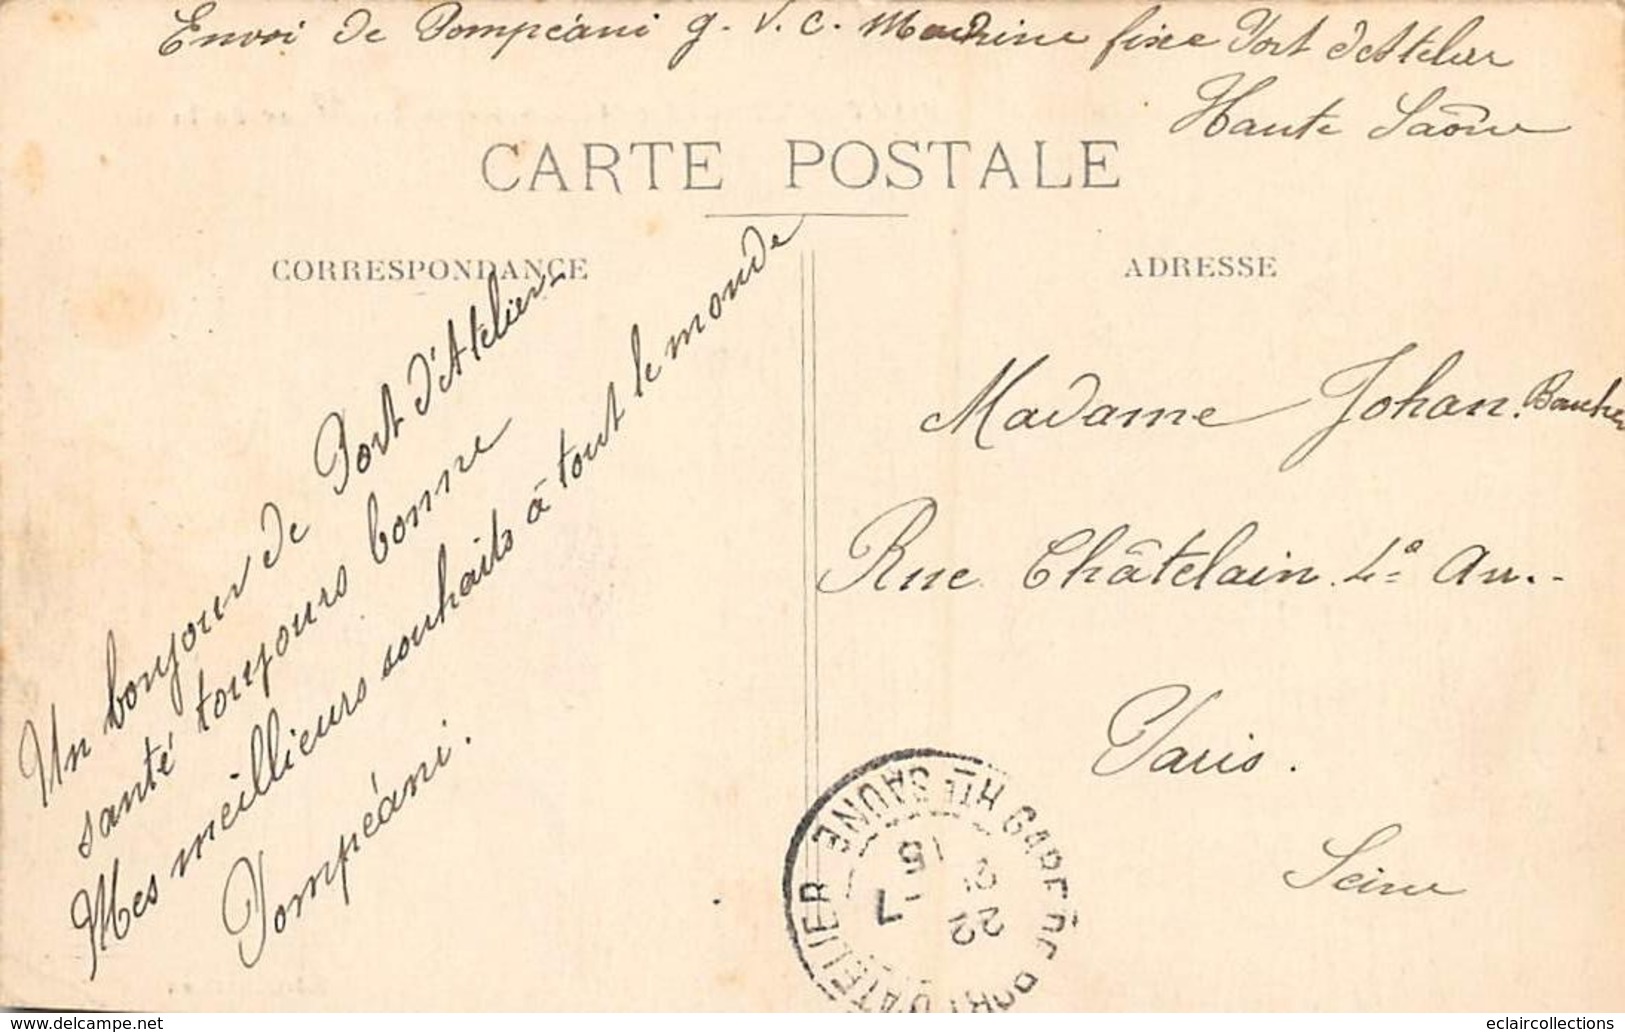 Envoi de Pompéani g. v. c. Machine fixe Port d'Atelier
Haute Saône
CARTE POSTALE
CORRESPONDANCE
ADRESSE
Un bonjour de Port d'Atelier
santé toujours bonne
Mes meillieurs souhaits à tout le monde
Pompéani.
Madame Johan
Rue Châtelain 4e Arr..
Paris.
Seine
GARE DE PORT D'ATELIER HTE SAÔNE
22
7
15
eclaircollections